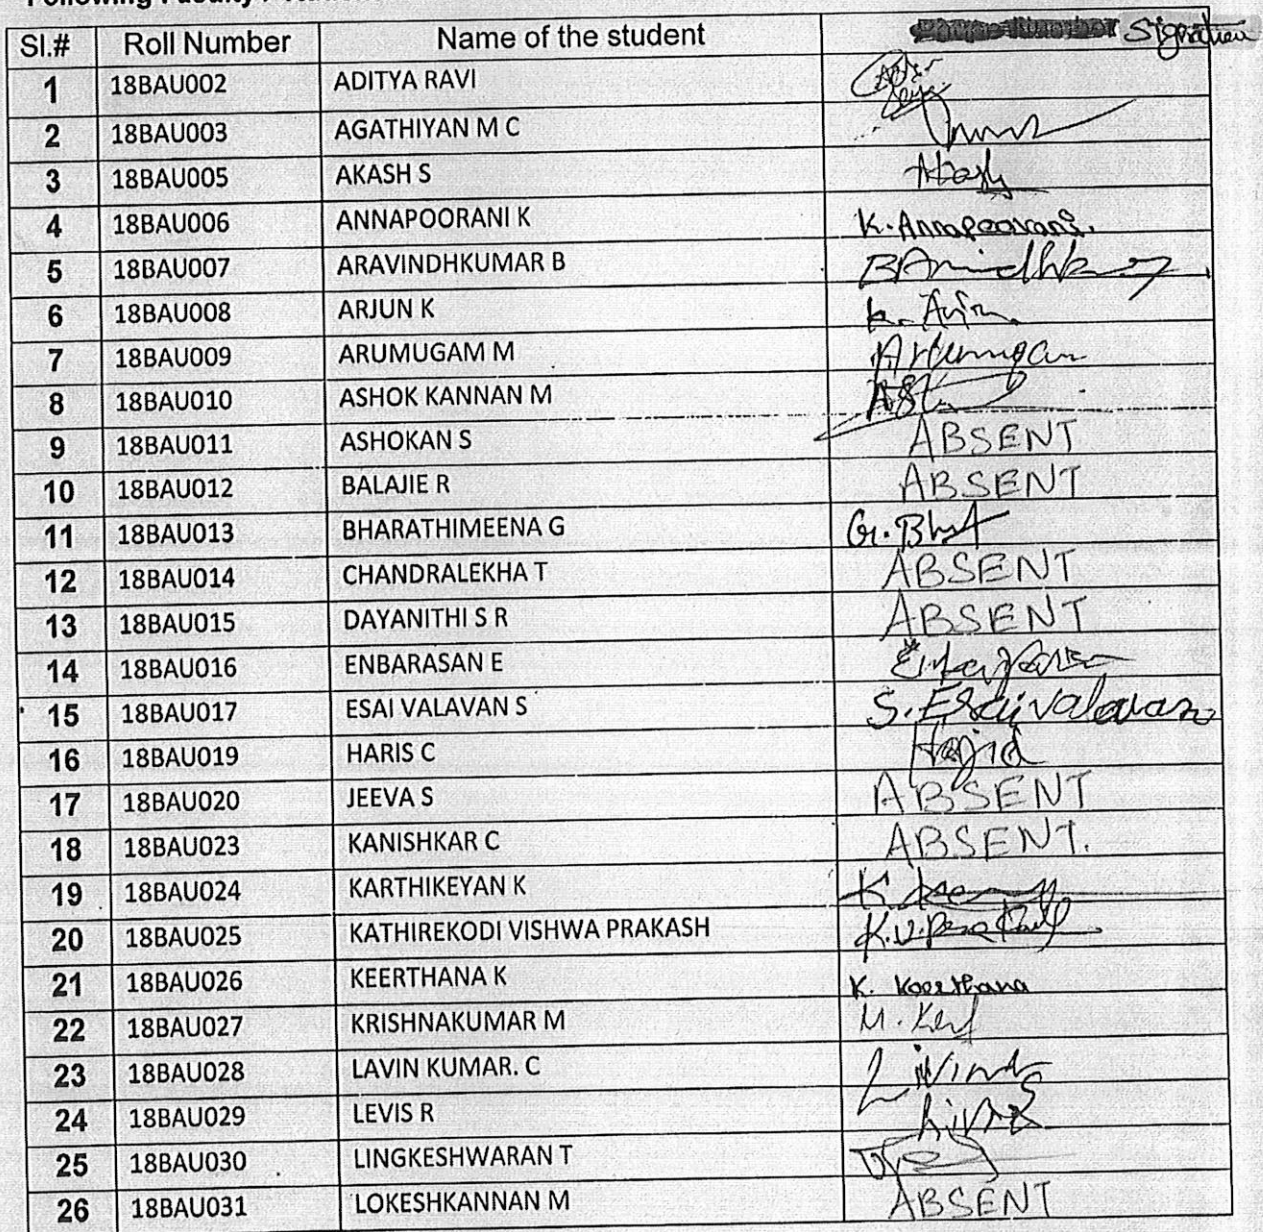 Sl.# Roll Number Name of the student Signature
1 18BAU002 ADITYA RAVI
2 18BAU003 AGATHIYAN M C
3 18BAU005 AKASH S Akash
4 18BAU006 ANNAPOORANI K K. Annapoorani.
5 18BAU007 ARAVINDHKUMAR B
6 18BAU008 ARJUN K K. Arjun
7 18BAU009 ARUMUGAM M Arumugam
8 18BAU010 ASHOK KANNAN M
9 18BAU011 ASHOKAN S ABSENT
10 18BAU012 BALAJIE R ABSENT
11 18BAU013 BHARATHIMEENA G
12 18BAU014 CHANDRALEKHA T ABSENT
13 18BAU015 DAYANITHI S R ABSENT
14 18BAU016 ENBARASAN E
15 18BAU017 ESAI VALAVAN S S. Esaivalavan
16 18BAU019 HARIS C
17 18BAU020 JEEVA S ABSENT
18 18BAU023 KANISHKAR C ABSENT.
19 18BAU024 KARTHIKEYAN K
20 18BAU025 KATHIREKODI VISHWA PRAKASH
21 18BAU026 KEERTHANA K K. Keerthana
22 18BAU027 KRISHNAKUMAR M
23 18BAU028 LAVIN KUMAR. C
24 18BAU029 LEVIS R
25 18BAU030 LINGKESHWARAN T
26 18BAU031 LOKESHKANNAN M ABSENT